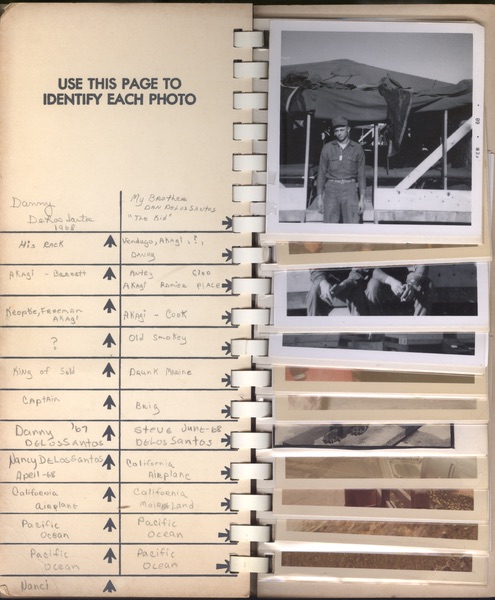 USE THIS PAGE TO
IDENTIFY EACH PHOTO
Danny
DeLosSantos
1968
My Brother
DAN DELOSSANTOS
"The Kid"
His RACK
Vendago, AKAgi, ?,
DANNY
AKAgi - BARNett
Autry Clao
AKAgi Ramien PLACE
Keopke, FReeman
AKAgi
AKAgi - Cook
?
Old Smokey
King of Sold
DRunk Marine
CAPtAin
BRig
DANNY '67
DELOSSANTOS
Steve June-68
DELOSSANTOS
NANCY DELOSSANTOS
April -68
CAliFORniA
AirplANe
CAliforniA
AirplANe
CAliforniA
MAiNeLAND
PAcific
OceAN
PAcific
OceAN
PAcific
OceAN
PAcific
OceAN
NANci